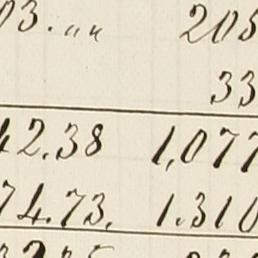 03. „ „ 205
33
42.38 1,077
74.73. 1.310